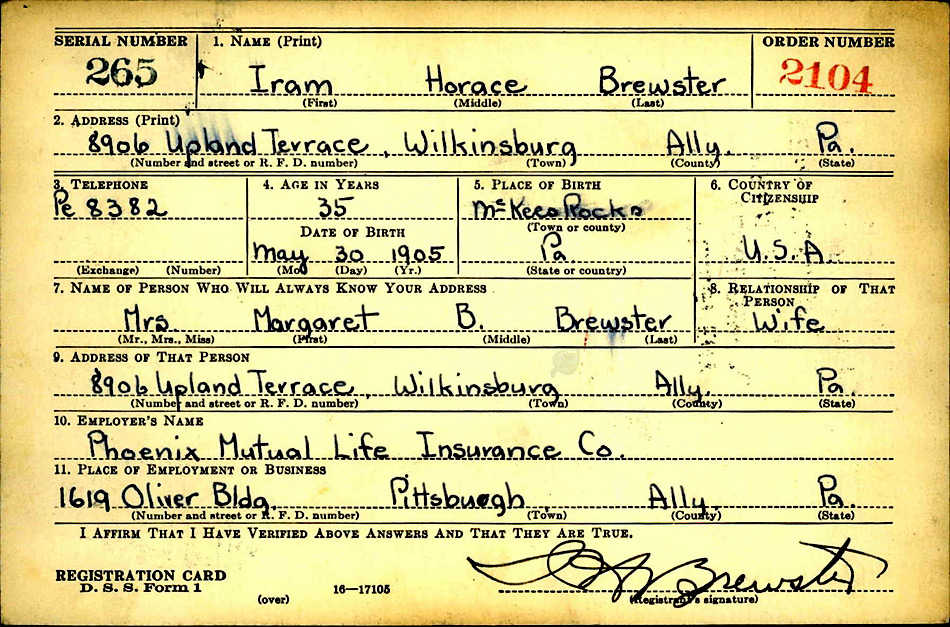 SERIAL NUMBER 1. NAME (Print) ORDER NUMBER
265 Iram Horace Brewster 2104
(First) (Middle) (Last)
2. ADDRESS (Print)
8906 Upland Terrace, Wilkinsburg Ally. Pa.
(Number and street or R. F. D. number) (Town) (County) (State)
3. TELEPHONE 4. AGE IN YEARS 5. PLACE OF BIRTH 6. COUNTRY OF
CITIZENSHIP
Pe 8382 35 McKees Rocks
(Town or county)
DATE OF BIRTH
May 30 1905 Pa. U.S.A.
(Exchange) (Number) (Mo.) (Day) (Yr.) (State or country)
7. NAME OF PERSON WHO WILL ALWAYS KNOW YOUR ADDRESS 8. RELATIONSHIP OF THAT
PERSON
Mrs. Margaret B. Brewster Wife
(Mr., Mrs., Miss) (First) (Middle) (Last)
9. ADDRESS OF THAT PERSON
8906 Upland Terrace, Wilkinsburg Ally. Pa.
(Number and street or R. F. D. number) (Town) (County) (State)
10. EMPLOYER'S NAME
Phoenix Mutual Life Insurance Co.
11. PLACE OF EMPLOYMENT OR BUSINESS
1619 Oliver Bldg. Pittsburgh Ally. Pa.
(Number and street or R. F. D. number) (Town) (County) (State)
I AFFIRM THAT I HAVE VERIFIED ABOVE ANSWERS AND THAT THEY ARE TRUE.
I H Brewster
REGISTRATION CARD
D. S. S. Form 1
(over) 16—17105 (Registrant's signature)